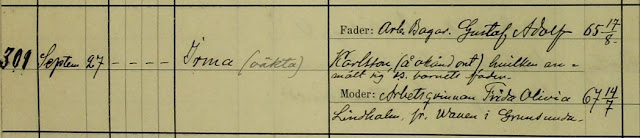 Fader: Arb. Bagar. Gustaf Adolf 65 17/8
301 Septem 27 - - - - Irma (oäkta) Karlsson (å okänd ort) hvilken an-
mält sig ss. barnets fader.
Moder: Arbetsqvinnan Frida Olivia 67 14/7
Lindholm, fr. Wanen i Grumsunda.